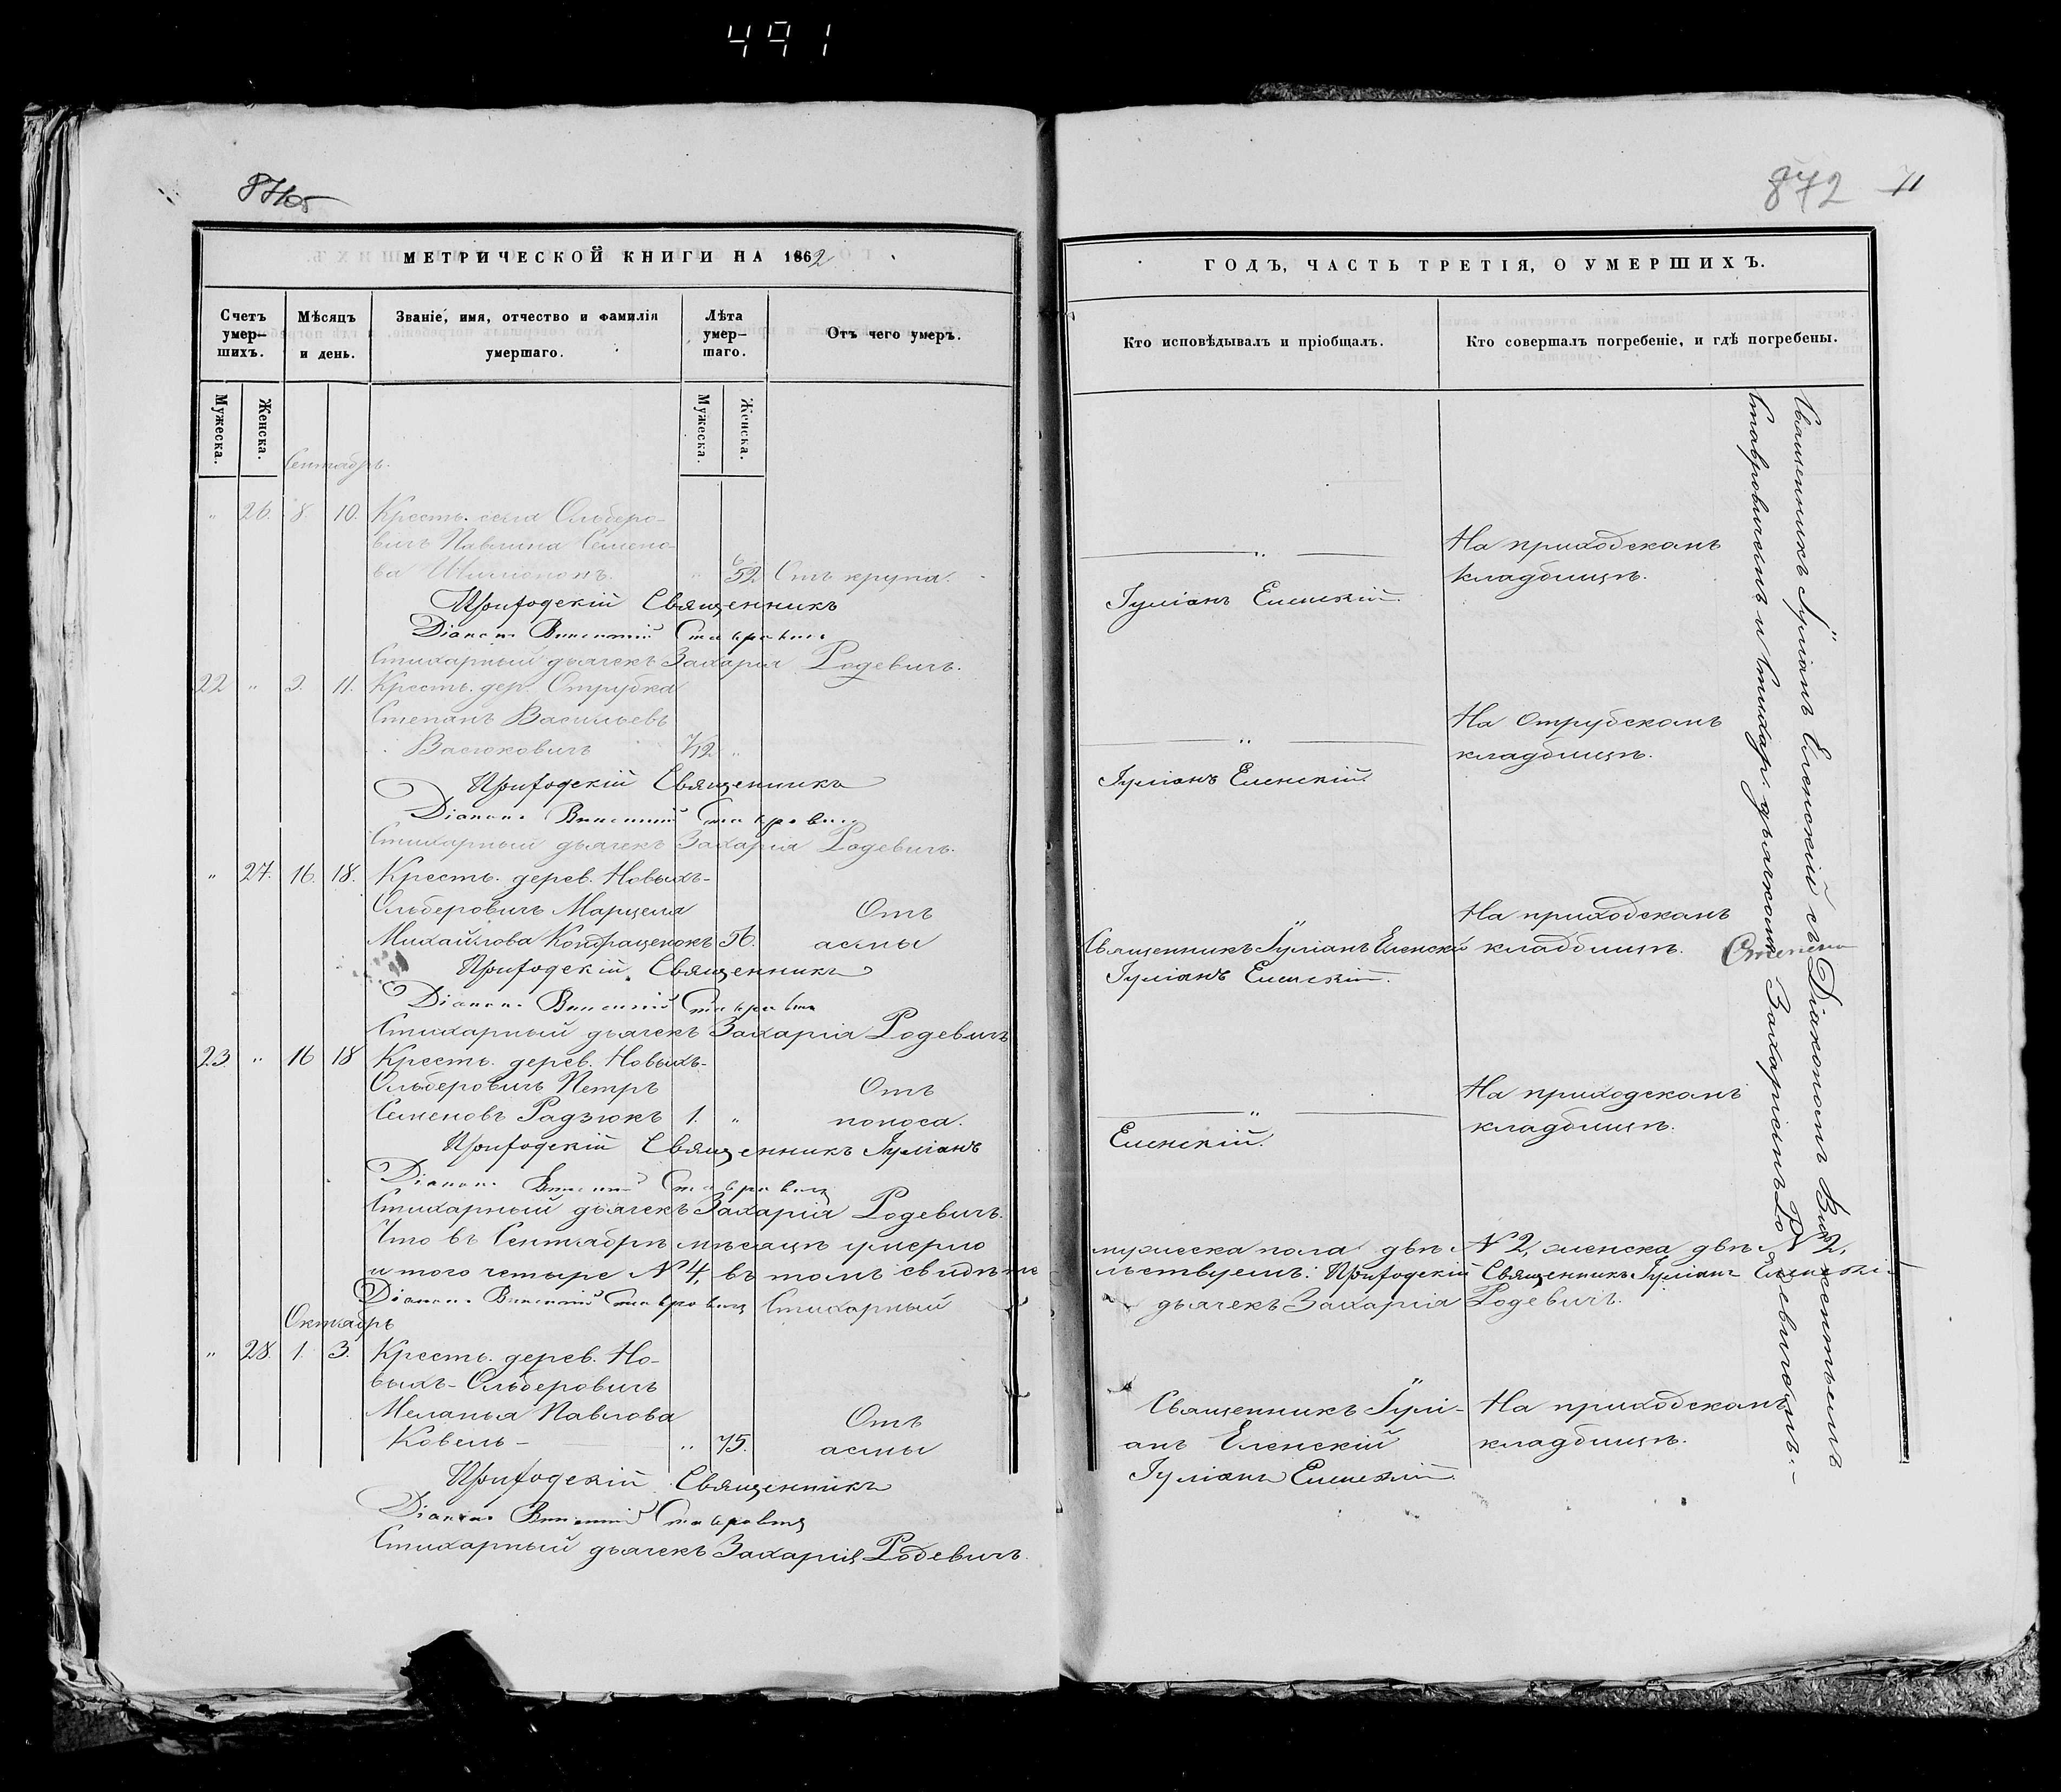 491
871об
МЕТРИЧЕСКОЙ КНИГИ НА 1862
Счетъ умер-шихъ.
Мѣсяцъ и день.
Званіе, имя, отчество и фамилія умершаго.
Лѣта умер-шаго.
Отъ чего умеръ.
Мужеска.
Женска.
Мужеска.
Женска.
Сентябрь.
" 26. 8. 10. Кресть. села Ольберо-
вичъ Павлина Семено-
ва " 52. Отъ крупа.
Приходскій Священникъ
Діаконъ Викентій Ставровичъ
Стихарный дьячекъ Захарія Родевичъ.
22 " 9. 11. Кресть. дер. Отрубка
Степанъ Васильевъ
Васюковичъ 7/12. "
Приходскій Священникъ
Діаконъ Викентій Ставровичъ
Стихарный дьячекъ Захарія Родевичъ.
" 27. 16. 18. Кресть. дерев. Новыхъ-
Ольберовичъ Марцеля Отъ
Михайлова Кондраценокъ 56. асмы
Приходскій Священникъ
Діаконъ Викентій Ставровичъ
Стихарный дьячекъ Захарія Родевичъ
23. " 16 18 Кресть. дерев. Новыхъ-
Ольберовичъ Петръ Отъ
Семеновъ Радзюкъ 1. " поноса.
Приходскій Священникъ Іуліанъ
Діаконъ Викентій Ставровичъ
Стихарный дьячекъ Захарія Родевичъ.
Что въ Сентябрѣ мѣсяцѣ умерло
и того четыре N 4, въ томъ свидѣте
Діаконъ Викентій Ставровичъ Стихарный
Октябрь
" 28. 1. 3. Кресть. дерев. Но-
выхъ-Ольберовичъ
Меланья Павлова Отъ
Ковель- " 75. асмы
Приходскій Священникъ
Діаконъ Викентій Ставровичъ
Стихарный дьячекъ Захарія Родевичъ.
872 11
ГОДЪ, ЧАСТЬ ТРЕТІЯ, О УМЕРШИХЪ.
Кто исповѣдывалъ и пріобщалъ.
Кто совершалъ погребеніе, и гдѣ погребены.
" На приходскомъ
кладбищѣ.
Іуліанъ Еленскій.
" На Отрубскомъ
кладбищѣ.
Іуліанъ Еленскій.
На приходскомъ
Священникъ Іуліанъ Еленскій кладбищѣ.
Іуліанъ Еленскій.
" На приходскомъ
кладбищѣ.
Еленскій.
мужеска пола двѣ N 2, женска двѣ N 2,
льствуемъ: Приходскій Священникъ Іуліанъ Еленскій
дьячекъ Захарія Родевичъ.
Священникъ Іулі- На приходскомъ
анъ Еленскій кладбищѣ.
Іуліанъ Еленскій.
Священникъ Іуліанъ Еленскій съ Діакономъ Викентьемъ
Ставровичемъ и Стихар. дьячкомъ Захаріемъ Родевичомъ.-